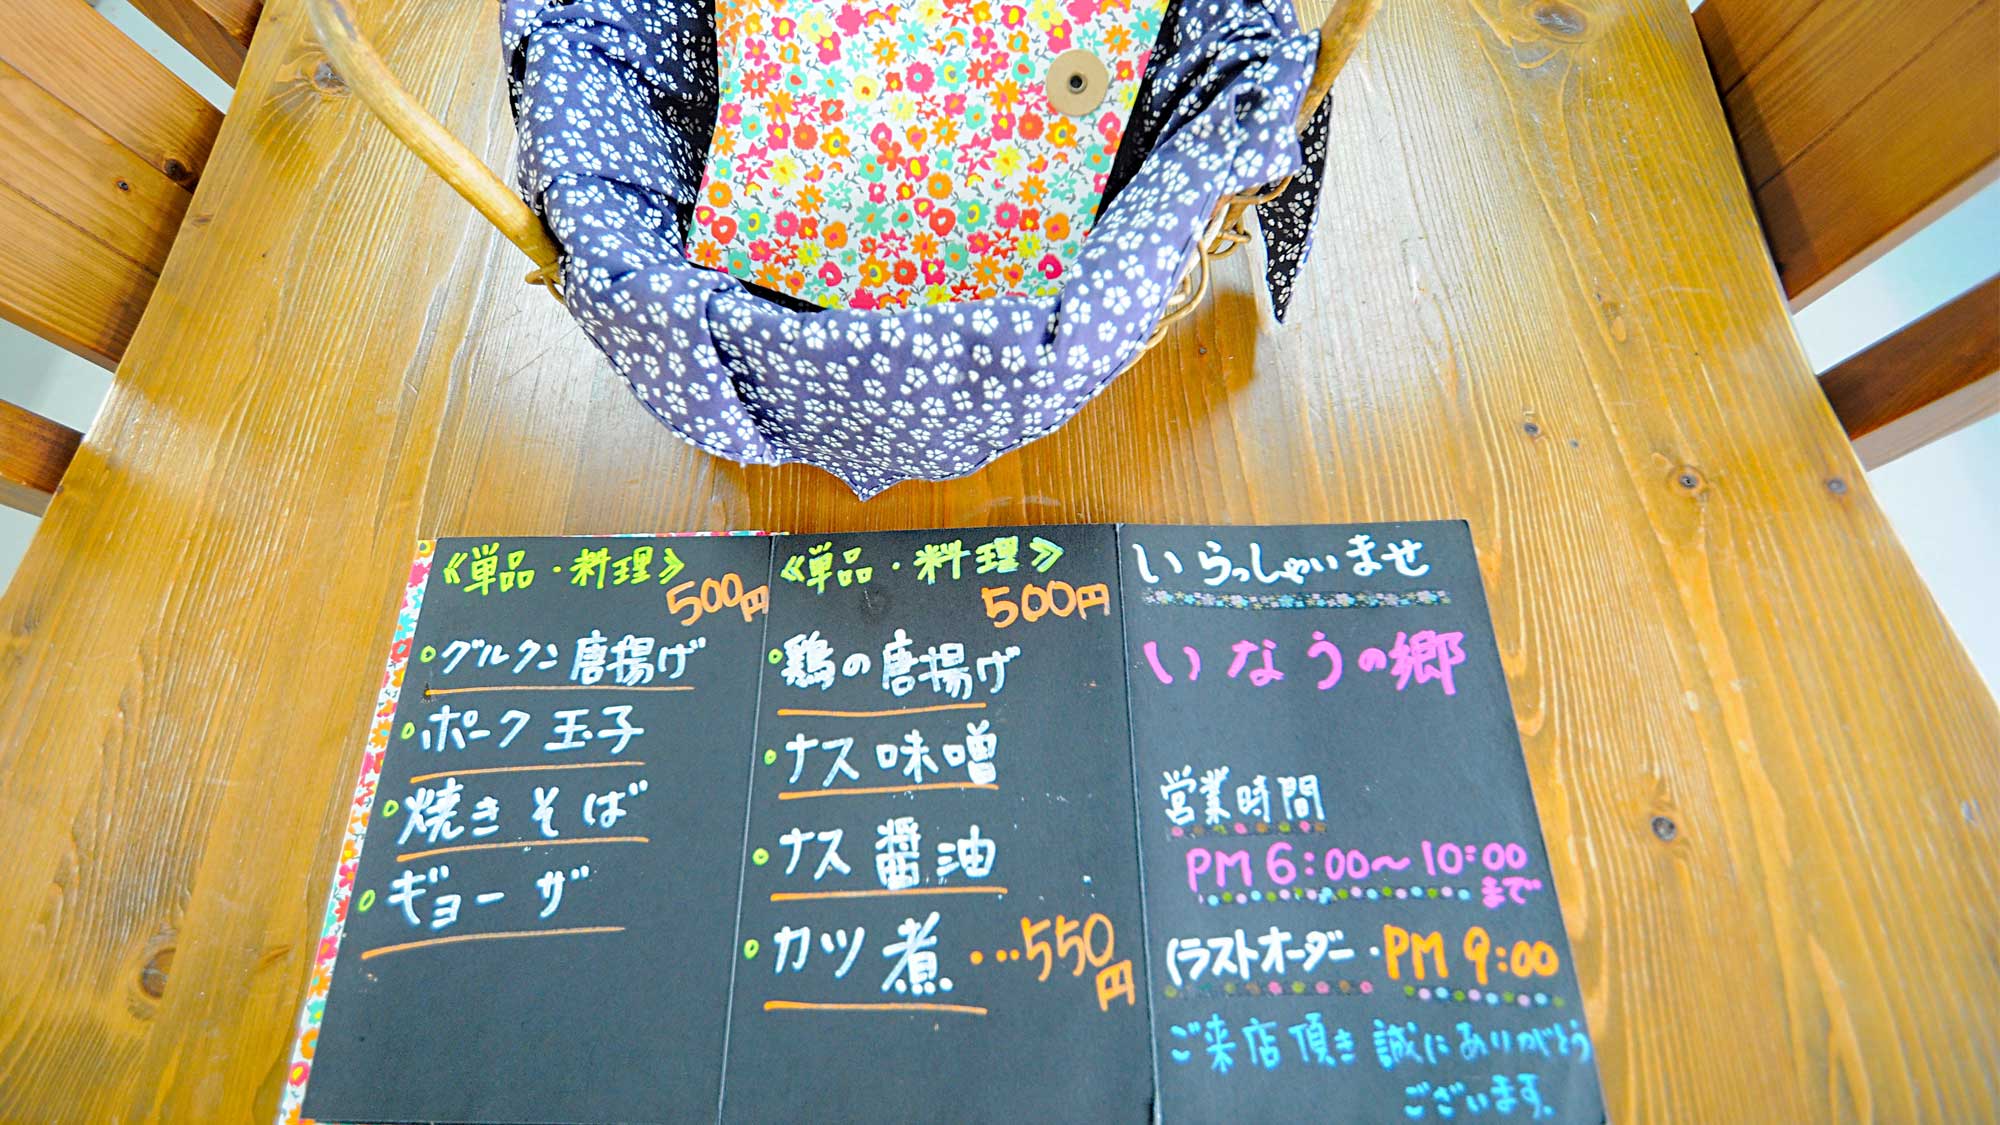 《単品・料理》
500円
グルクン唐揚げ
ポーク玉子
焼きそば
ギョーザ
《単品・料理》
500円
鶏の唐揚げ
ナス味噌
ナス醤油
カツ煮・・・550円
いらっしゃいませ
いなうの郷
営業時間
PM 6:00〜10:00まで
(ラストオーダー・PM 9:00
ご来店頂き誠にありがとう
ございます。